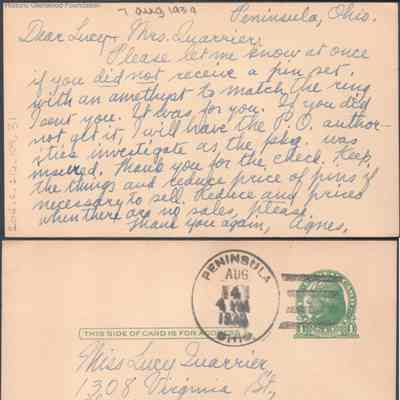 Historic Glenwood Foundation
7 aug 1939
Peninsula, Ohio.
Dear Lucy + Mrs. Quarrier:
Please let me know at once
if you did not receive a pin set
with an amethypt to match the ring
I sent you. It was for you. If you did
not get it, I will have the P.O. author-
ities investigate as the pkg. was
insured. Thank you for the check. Keep
the things and reduce price of pins if
necessary to sell. Reduce and prices
when there are no sales, please.
Thank you again, Agnes.
PENINSULA
AUG
14
OHIO.
THIS SIDE OF CARD IS FOR ADDRESS
1 1
Miss Lucy Quarrier,
1308 Virginia St,